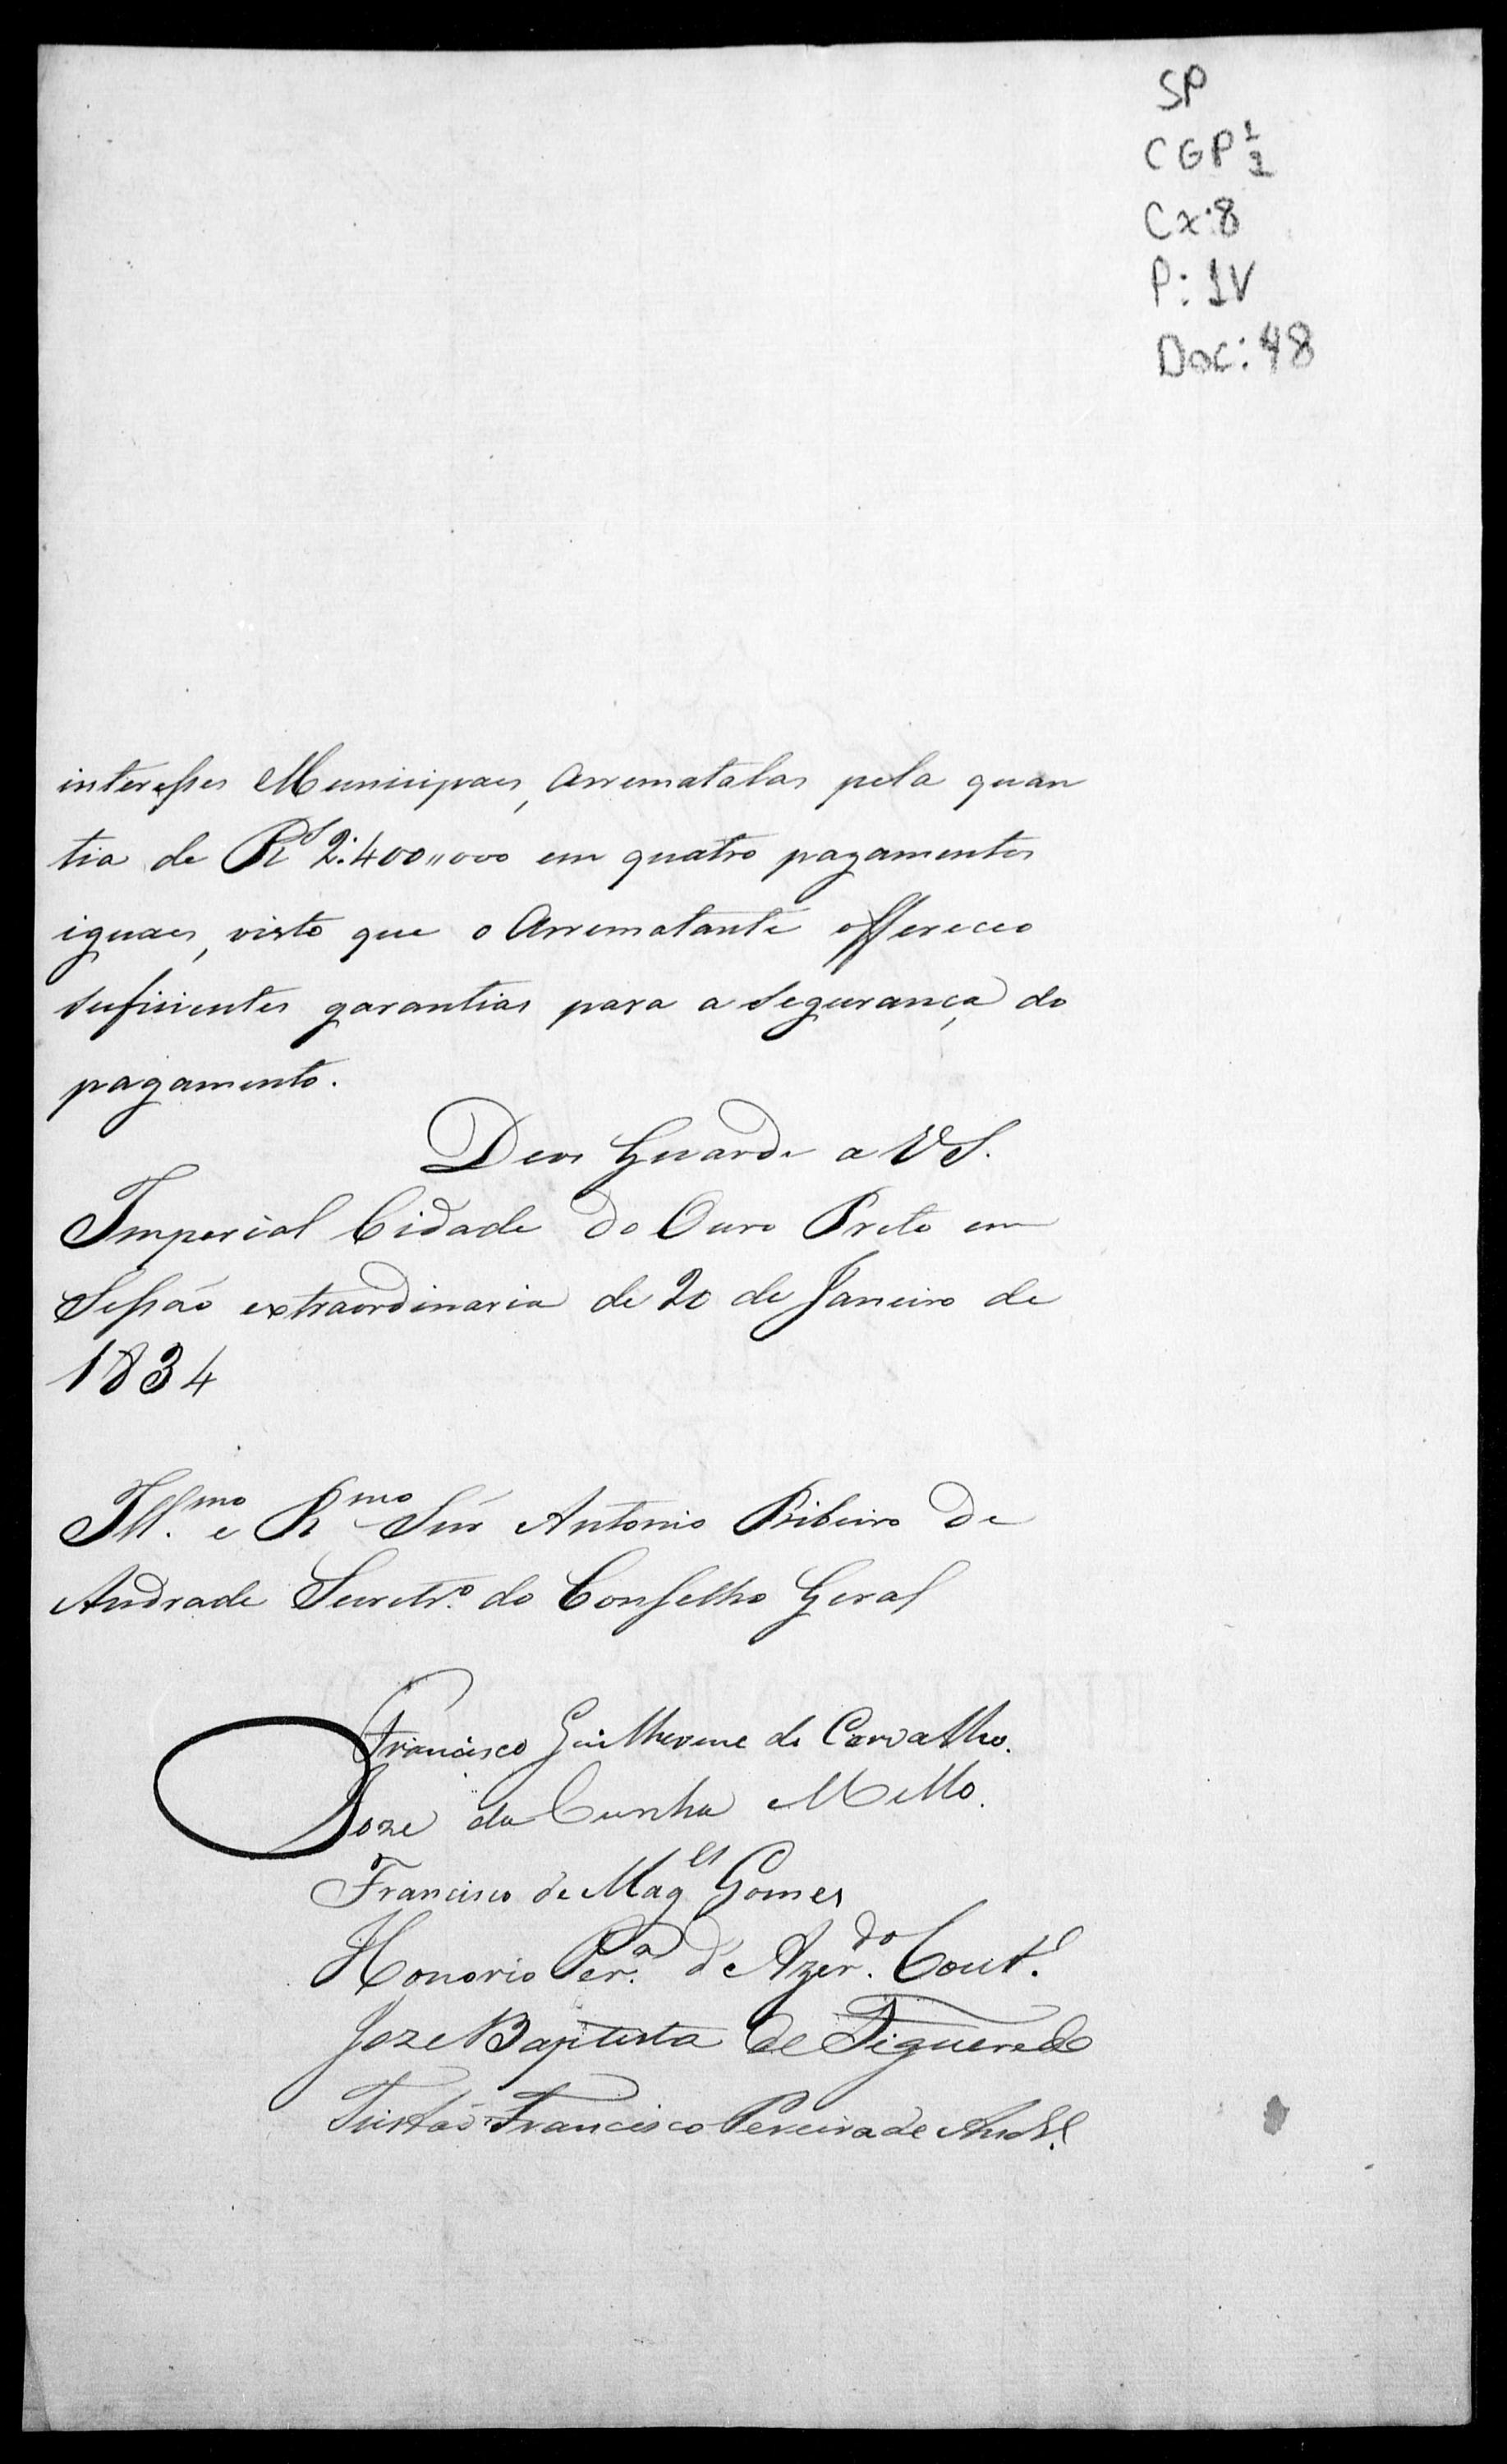 SP
CGP 1/1
Cx: 8
P: IV
Doc: 48
interesses Municipaes, Arrematalas pela quan
tia de Rs 2:400,,000 em quatro pagamentos
iguaes, visto que o Arrematante offereceo
suficientes garantias para a segurança do
pagamento.
Deos Guarde a VS.
Imperial Cidade do Ouro Preto em
Sessão extraordinaria de 20 de Janeiro de
1834
Ill.mo e Rmo Snr Antonio Ribeiro de
Andrade Secretr.o do Conselho Geral
Francisco Guilherme de Carvalho.
Joze da Cunha Mello.
Francisco de Mag.es Gomes
Honorio Per.a d'Azer.do Cout.o
Joze Baptista de Figueredo
Tristão Francisco Pereira de Andr.e